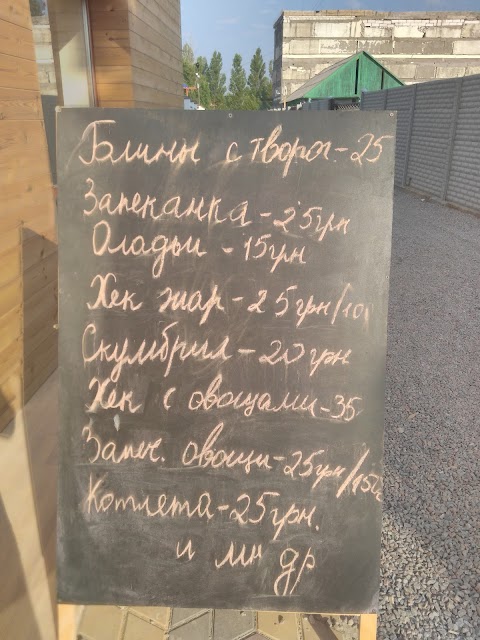 Блины с творог-25
Запеканка-25грн
Оладьи-15грн
Хек жар-25грн/10
Скумбрия-20грн
Хек с овощами-35
Запеч. овощи-25грн/150
Котлета-25грн.
и мн др